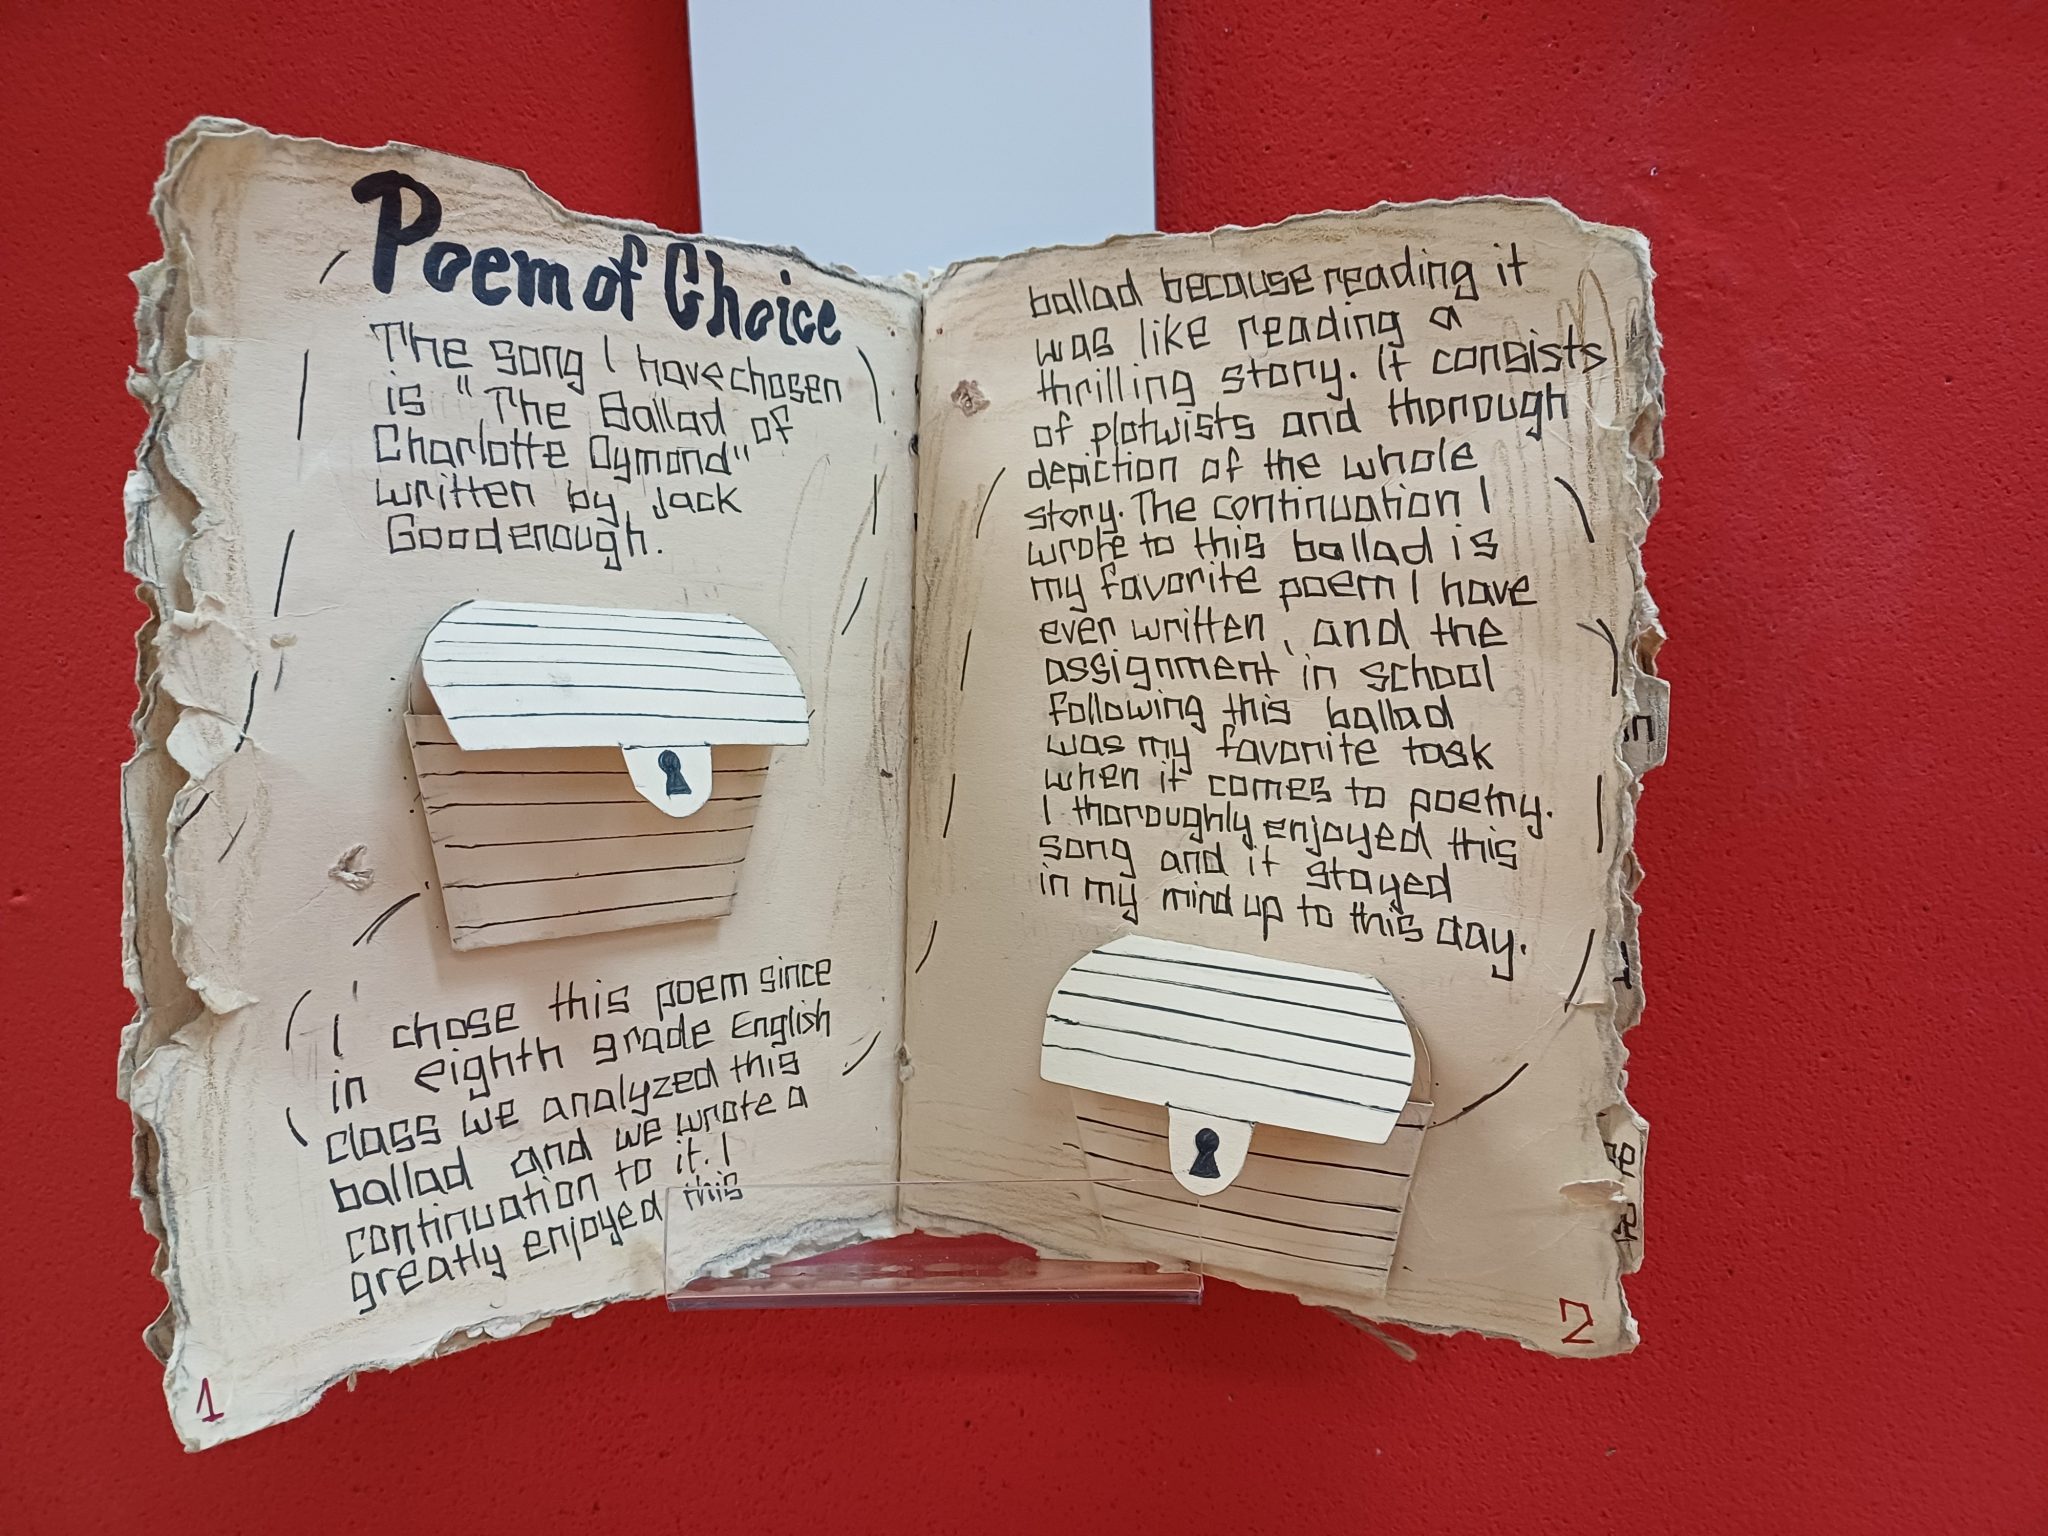 Poem of Choice
The song I have chosen
is "The Ballad of
Charlotte Dymond"
written by Jack
Goodenough.
I chose this poem since
in eighth grade English
class we analyzed this
ballad and we wrote a
continuation to it. I
greatly enjoyed this
1
ballad because reading it
was like reading a
thrilling story. It consists
of plotwists and thorough
depiction of the whole
story. The continuation I
wrote to this ballad is
my favorite poem I have
ever written, and the
assignment in school
following this ballad
was my favorite task
when it comes to poetry.
I thoroughly enjoyed this
song and it stayed
in my mind up to this day.
2